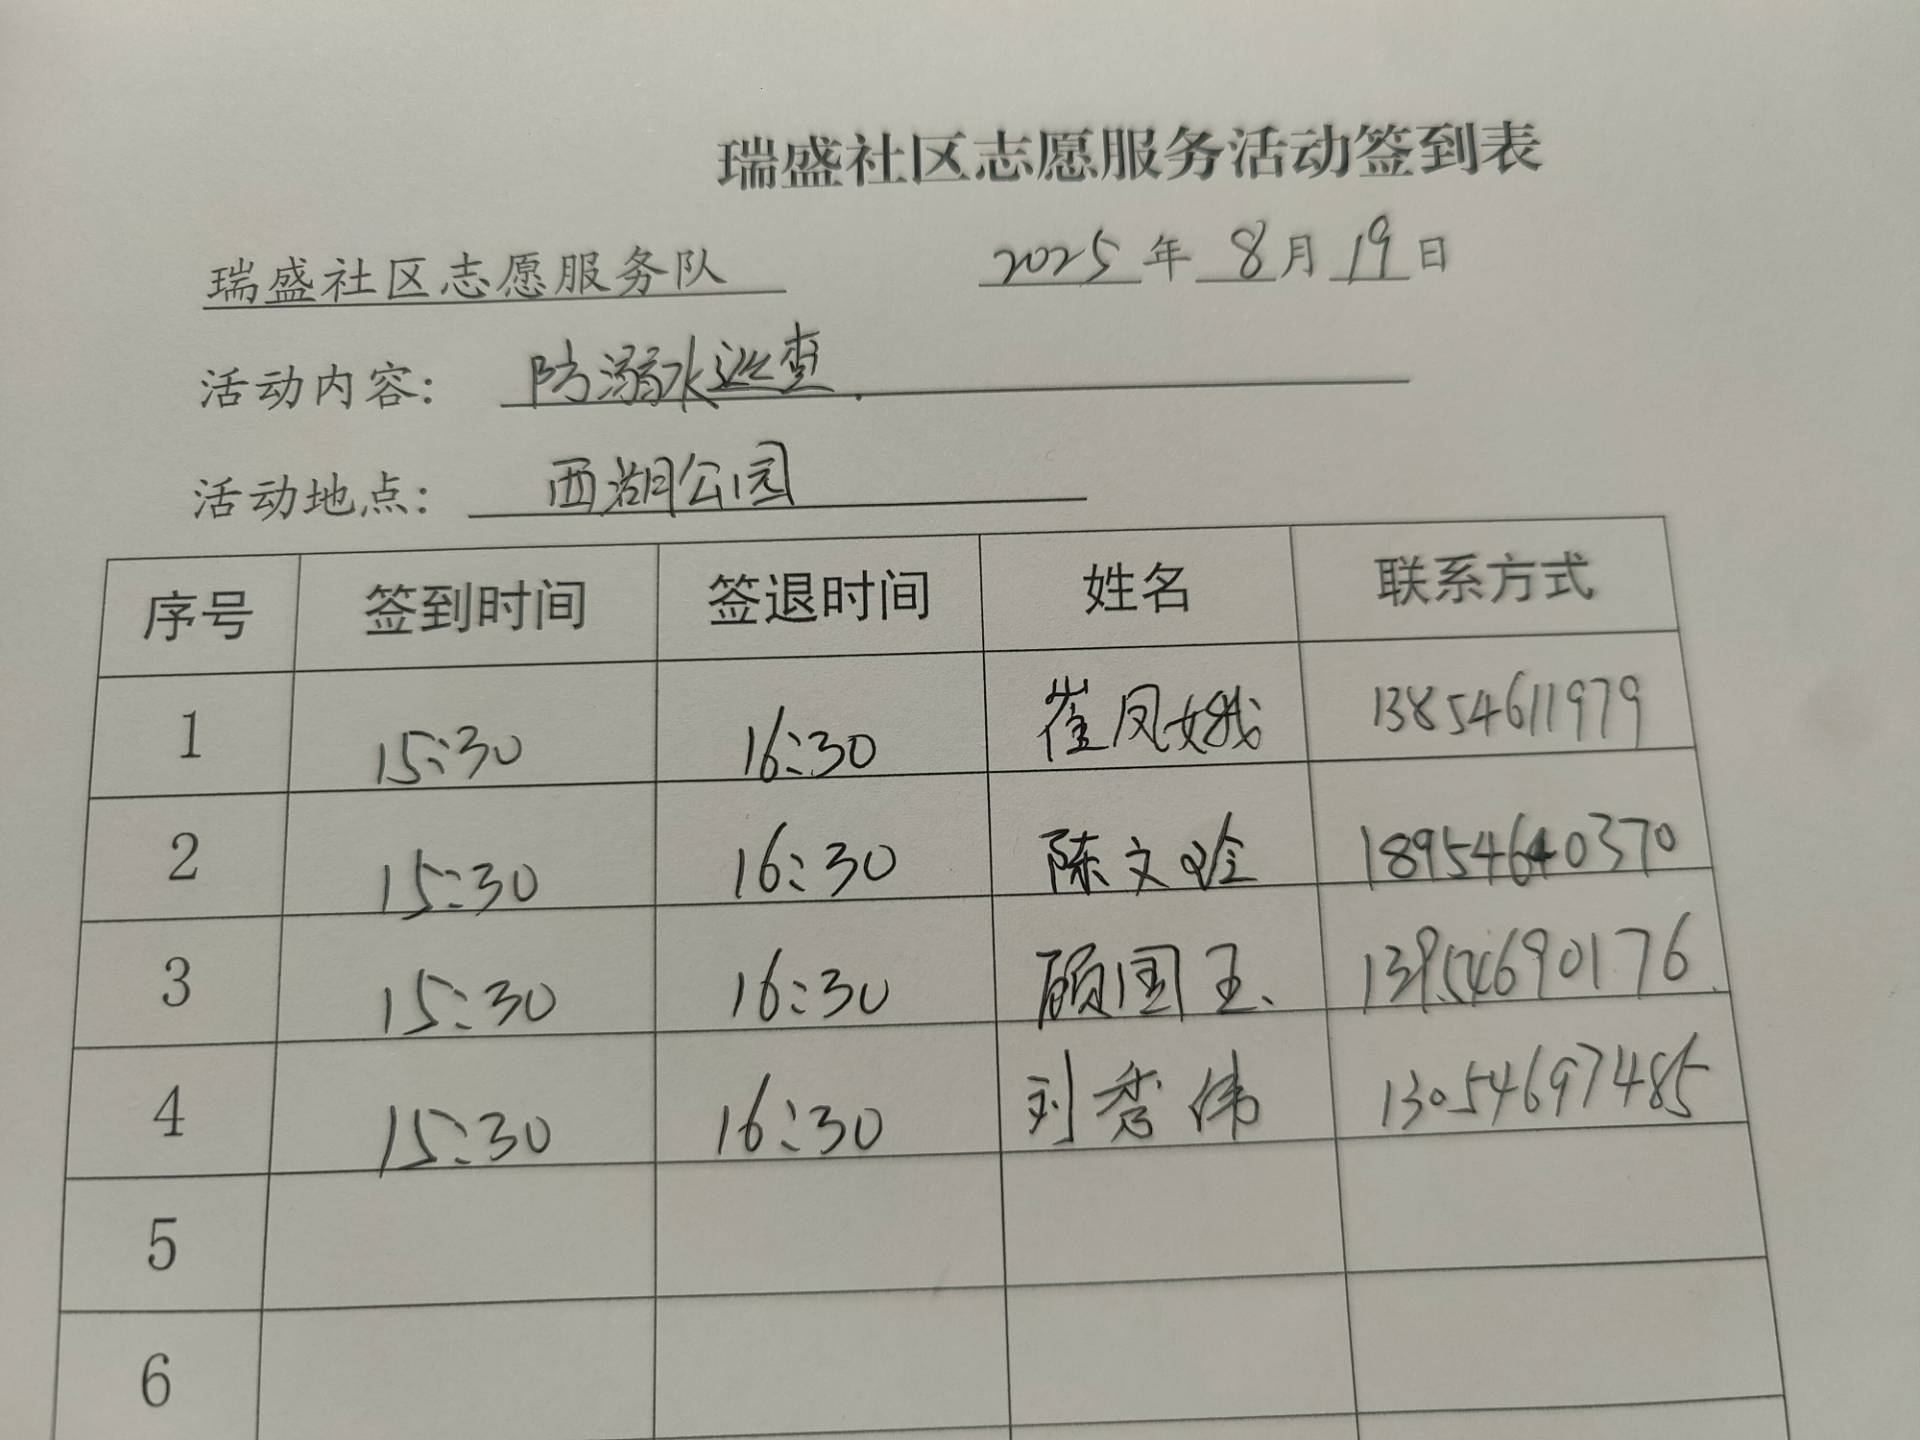 瑞盛社区志愿服务活动签到表
瑞盛社区志愿服务队 2025年8月19日
活动内容: 防溺水巡查.
活动地点: 西湖公园
序号 签到时间 签退时间 姓名 联系方式
1 15:30 16:30 崔凤娥 13854611979
2 15:30 16:30 陈文玲 18954640370
3 15:30 16:30 顾国玉 13954690176
4 15:30 16:30 刘秀伟 13054697485
5
6